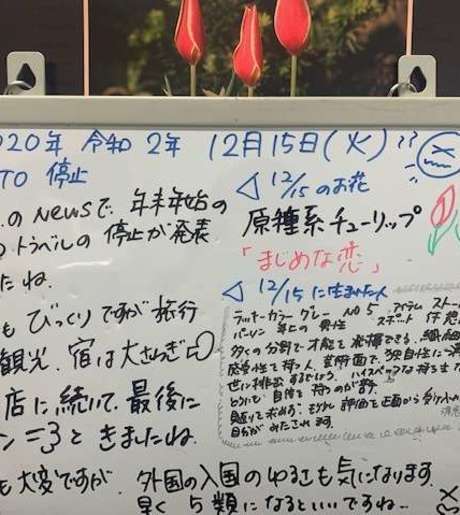 2020年 令和2年 12月15日(火)
TO 停止
のNEWSで、年末年始の
トラベルの停止が発表
たね。
も びっくりですが旅行
観光、宿は大さわぎ
店に続いて、最後に
ン=3 ときましたね。
も大変ですが、
外国の入国のゆるさも気になります。
早く 5類になるといいですね…
12/15のお花
原種系チューリップ
「まじめな恋」
12/15に生まれた人
ラッキーカラー グレー NO 5 アイテム ストー
パーソン 年上の 男性 スポット
多くの分野で才能を発揮できる、繊細
感受性を持つ人、芸術面で、独自性に
自信を持つのが
評価を正面から
自分が みたされます。